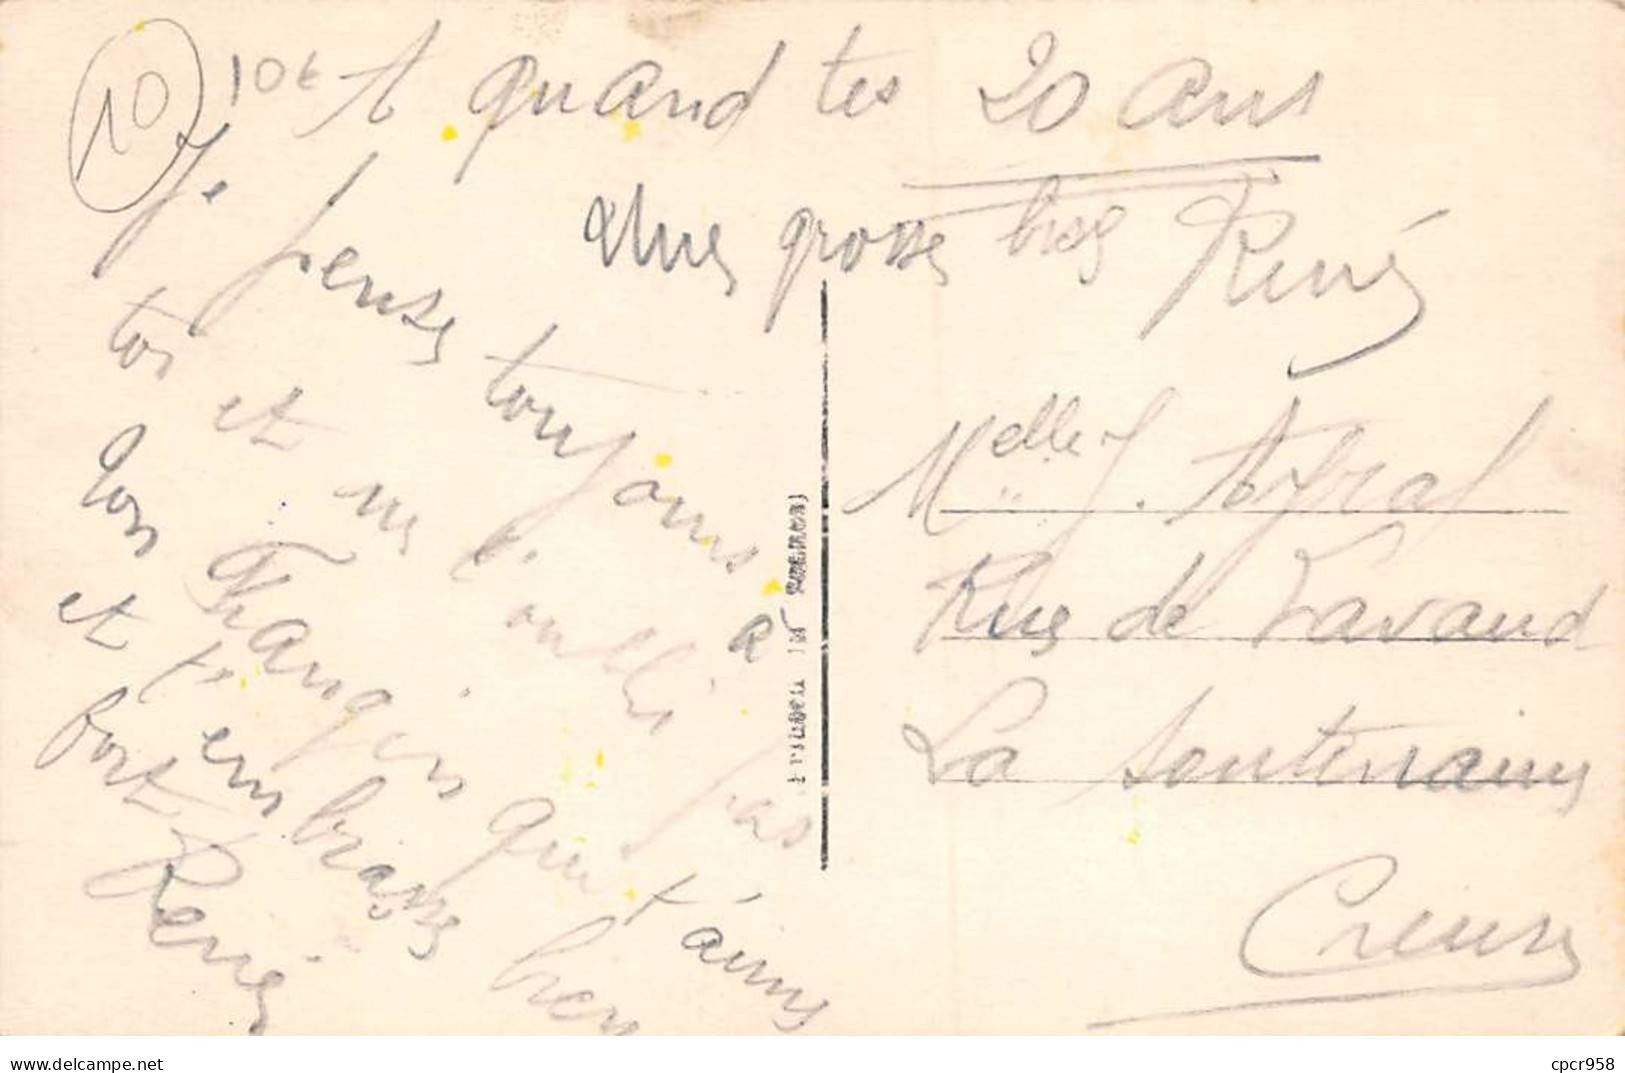 10
10€
A quand tes 20 ans
Une grosse bise René
Je pense toujours à
toi et ne l'oublie pas
ton Frangin qui t'aime bien
et t'embrasse
fort
René
Melle J. Ayral
Rue de Lavaud
La Souterraine
Creuse
delcampe.net
cpcr958